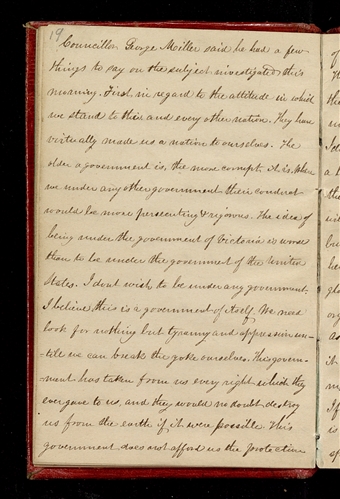 19
Councillor George Miller said he had a few
things to say on the subject investigated this
morning. First in regard to the attitude in which
we stand to this and every other nation. They have
virtually made us a nation to ourselves. The
older a government is, the more corrupt it is. Were
we under any other government their conduct
would be more persecuting & rigorous. The idea of
being under the government of Victoria is worse
than to be under the government of the United
States. I dont wish to be under any government.
I believe this is a government of itself. We need
look for nothing but tyranny and oppression un-
-till we can break the yoke ourselves. This govern-
-ment has taken from us every right which they
ever gave to us, and they would no doubt destroy
us from the earth if it were possible. This
government does not afford us the protection